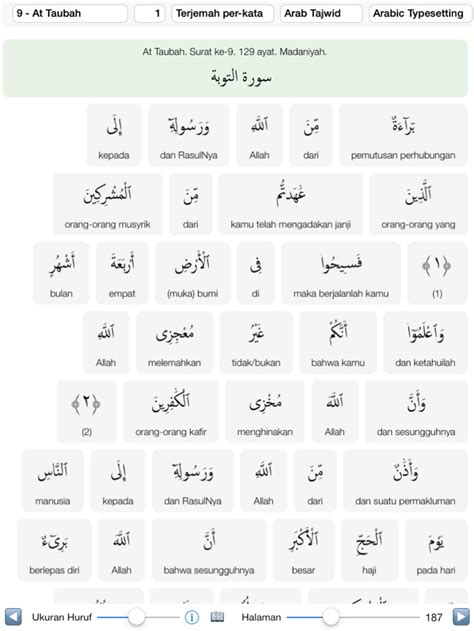 9 - At Taubah 1 Terjemah per-kata Arab Tajwid Arabic Typesetting
At Taubah. Surat ke-9. 129 ayat. Madaniyah.
سورة التوبة
بَرَآءَةٌ مِّنَ ٱللَّهِ وَرَسُولِهِۦٓ إِلَى
pemutusan perhubungan dari Allah dan RasulNya kepada
ٱلَّذِينَ عَٰهَدتُّم مِّنَ ٱلْمُشْرِكِينَ
orang-orang yang kamu telah mengadakan janji dari orang-orang musyrik
﴿١﴾ فَسِيحُوا۟ فِى ٱلْأَرْضِ أَرْبَعَةَ أَشْهُرٍ
(1) maka berjalanlah kamu di (muka) bumi empat bulan
وَٱعْلَمُوٓا۟ أَنَّكُمْ غَيْرُ مُعْجِزِى ٱللَّهِ
dan ketahuilah bahwa kamu tidak/bukan melemahkan Allah
وَأَنَّ ٱللَّهَ مُخْزِى ٱلْكَٰفِرِينَ ﴿٢﴾
dan sesungguhnya Allah menghinakan orang-orang kafir (2)
وَأَذَٰنٌ مِّنَ ٱللَّهِ وَرَسُولِهِۦٓ إِلَى ٱلنَّاسِ
dan suatu permakluman dari Allah dan RasulNya kepada manusia
يَوْمَ ٱلْحَجِّ ٱلْأَكْبَرِ أَنَّ ٱللَّهَ بَرِىٓءٌ
pada hari haji besar bahwa sesungguhnya Allah berlepas diri
Ukuran Huruf Halaman 187